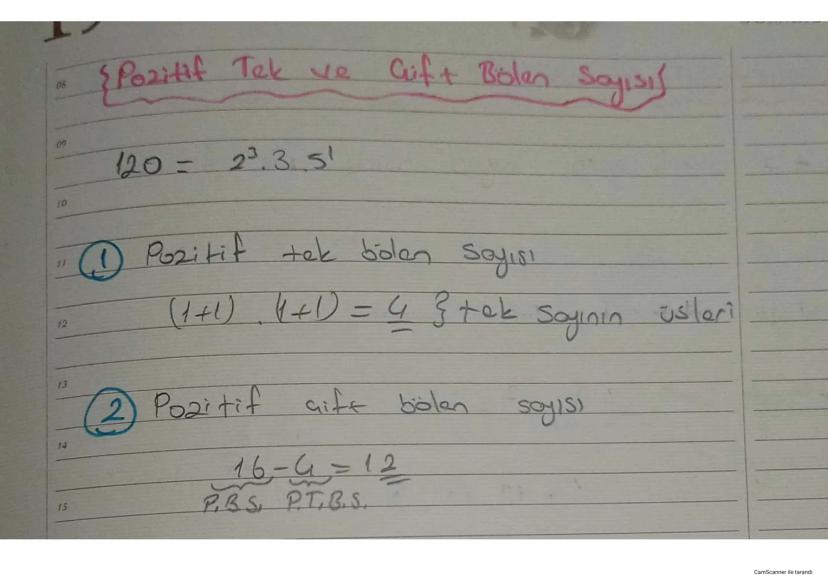 {Pozitif Tek ve Çift Bölen Sayısı}
08
09
120 = 2³.3.5¹
10
11 ① Pozitif tek bölen sayısı
12 (1+1).(1+1) = 4 } tek sayının üsleri
13
② Pozitif çift bölen sayısı
14
16-4 = 12
15 P.B.S. P.T.B.S.
CamScanner ile tarandı